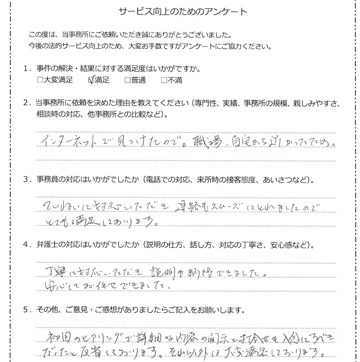 サービス向上のためのアンケート
この度は、当事務所にご依頼いただき誠にありがとうございました。
今後の法的サービス向上のため、大変お手数ですがアンケートにご協力ください。
1. 事件の解決・結果に対する満足度はいかがですか。
□大変満足 ☑満足 □普通 □不満
2. 当事務所に依頼を決めた理由を教えてください(専門性、実績、事務所の規模、親しみやすさ、
相談時の対応、他事務所との比較など)。
インターネットで見つけたので。職場、自宅から近かったため。
3. 事務員の対応はいかがでしたか(電話での対応、来所時の接客態度、あいさつなど)。
ていねいに対応いただき 連絡もスムーズにとれましたので
とても満足しております。
4. 弁護士の対応はいかがでしたか(説明の仕方、話し方、対応の丁寧さ、安心感など)。
丁寧に対応いただき 説明も納得できました。
安心してお任せできました。
5. その他、ご意見・ご感想がありましたらご記入をお願いします。
初回のヒアリングで詳細な内容の開示と打合せを入念にすべき
だったと反省しております。それ以外は大変満足しております。